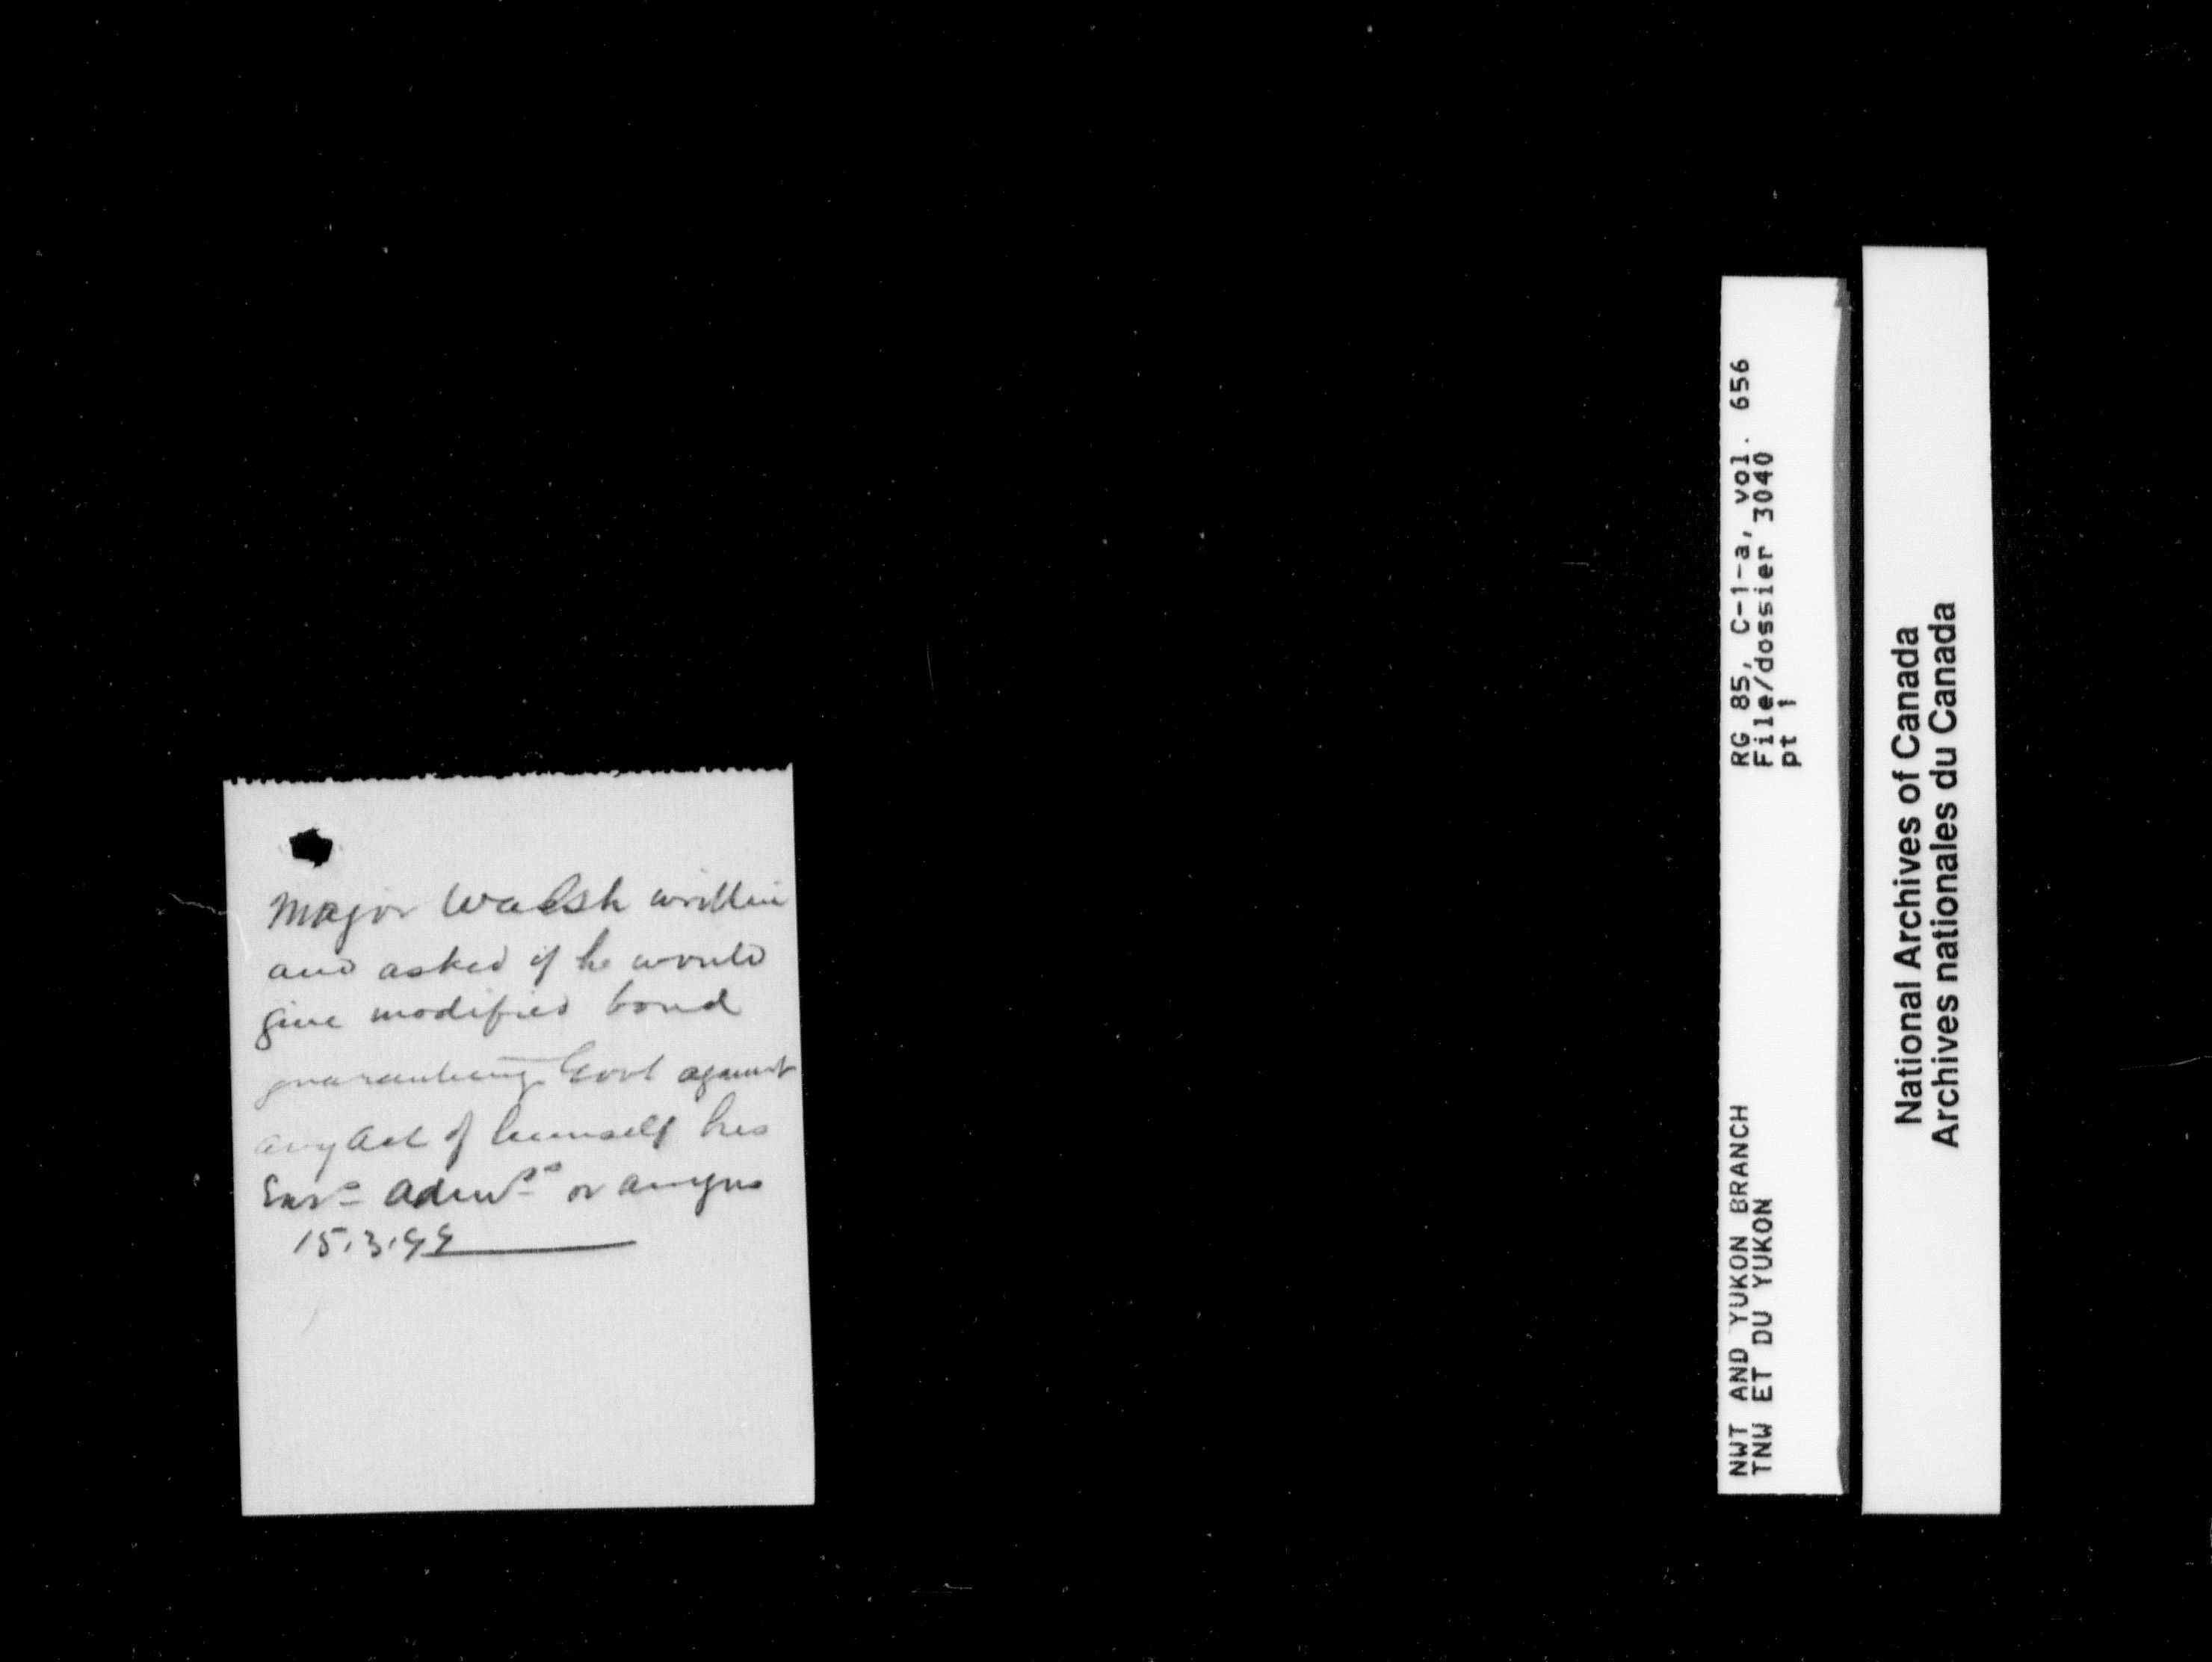 Major Walsh written
and asked if he would
give modified bond
guaranteeing Govt against
any act of himself his
Exrs Admrs or assigns
15.3.99
RG 85, C-1-a, vol. 656
File/dossier 3040
pt 1
NWT AND YUKON BRANCH
TNW ET DU YUKON
National Archives of Canada
Archives nationales du Canada